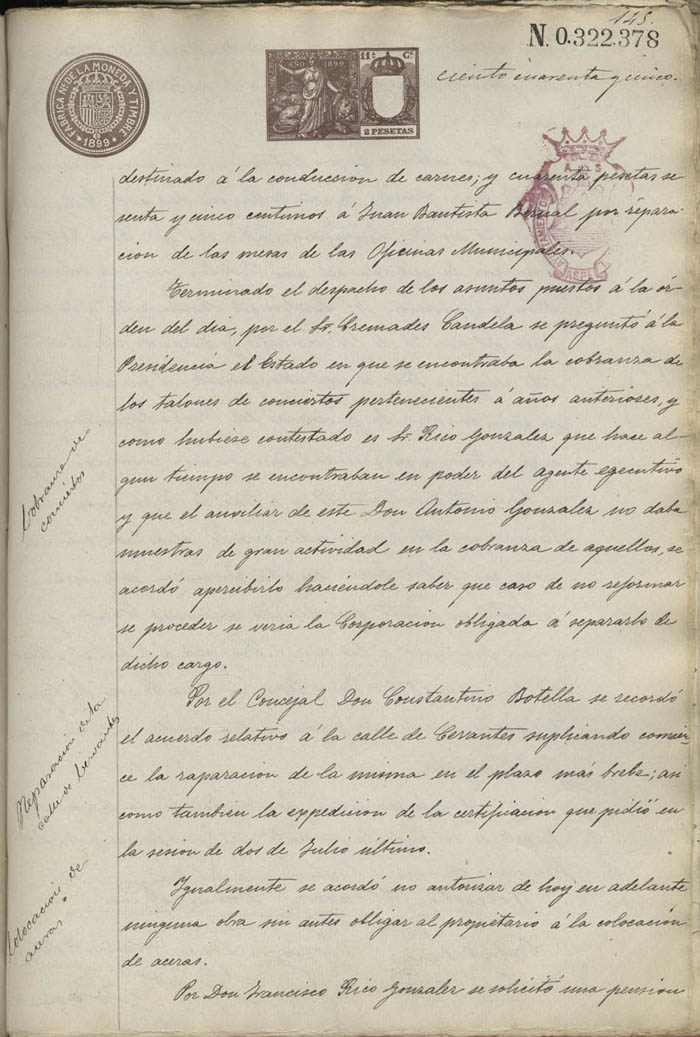 145.
N. 0.322.378
FABRICA NL. DE LA MONEDA Y TIMBRE
1899
AÑO 1899
11ª Cª
2 PESETAS
ciento cuarenta y cinco.
AYUNTAMIENTO
ASPE
destinado á la conduccion de carnes; y cuarenta pesetas se
senta y cinco centimos á Juan Bautista Bernal por repara-
cion de las mesas de las Oficinas Municipales.
Terminado el despacho de los asuntos puestos á la ór-
den del dia, por el Sr. Cremades Candela se preguntó á la
Presidencia el Estado en que se encontraba la cobranza de
los talones de conciertos pertenecientes á años anteriores, y
como hubiese contestado es Sr. Rico Gonzalez que hace al-
gun tiempo se encontraban en poder del agente egecutivo
Cobranza de
conciertos
y que el auxiliar de este Don Antonio Gonzalez no daba
muestras de gran actividad en la cobranza de aquellos, se
acordó apercibirlo haciéndole saber que caso de no reformar
se proceder se veria la Corporacion obligada á separarlo de
dicho cargo.
Por el Concejal Don Constantino Botella se recordó
Reparacion de la
calle de Cervantes
el acuerdo relativo á la calle de Cervantes suplicando comien-
ce la raparacion de la misma en el plazo más brebe; asi
como tambien la expedicion de la certificacion que pidió en
la sesion de dos de Julio último.
Colocación de
aceras.
Igualmente se acordó no autorizar de hoy en adelante
ninguna obra sin antes obligar al propietario á la colocación
de aceras.
Por Don Francisco Rico Gonzalez se solicitó una pension